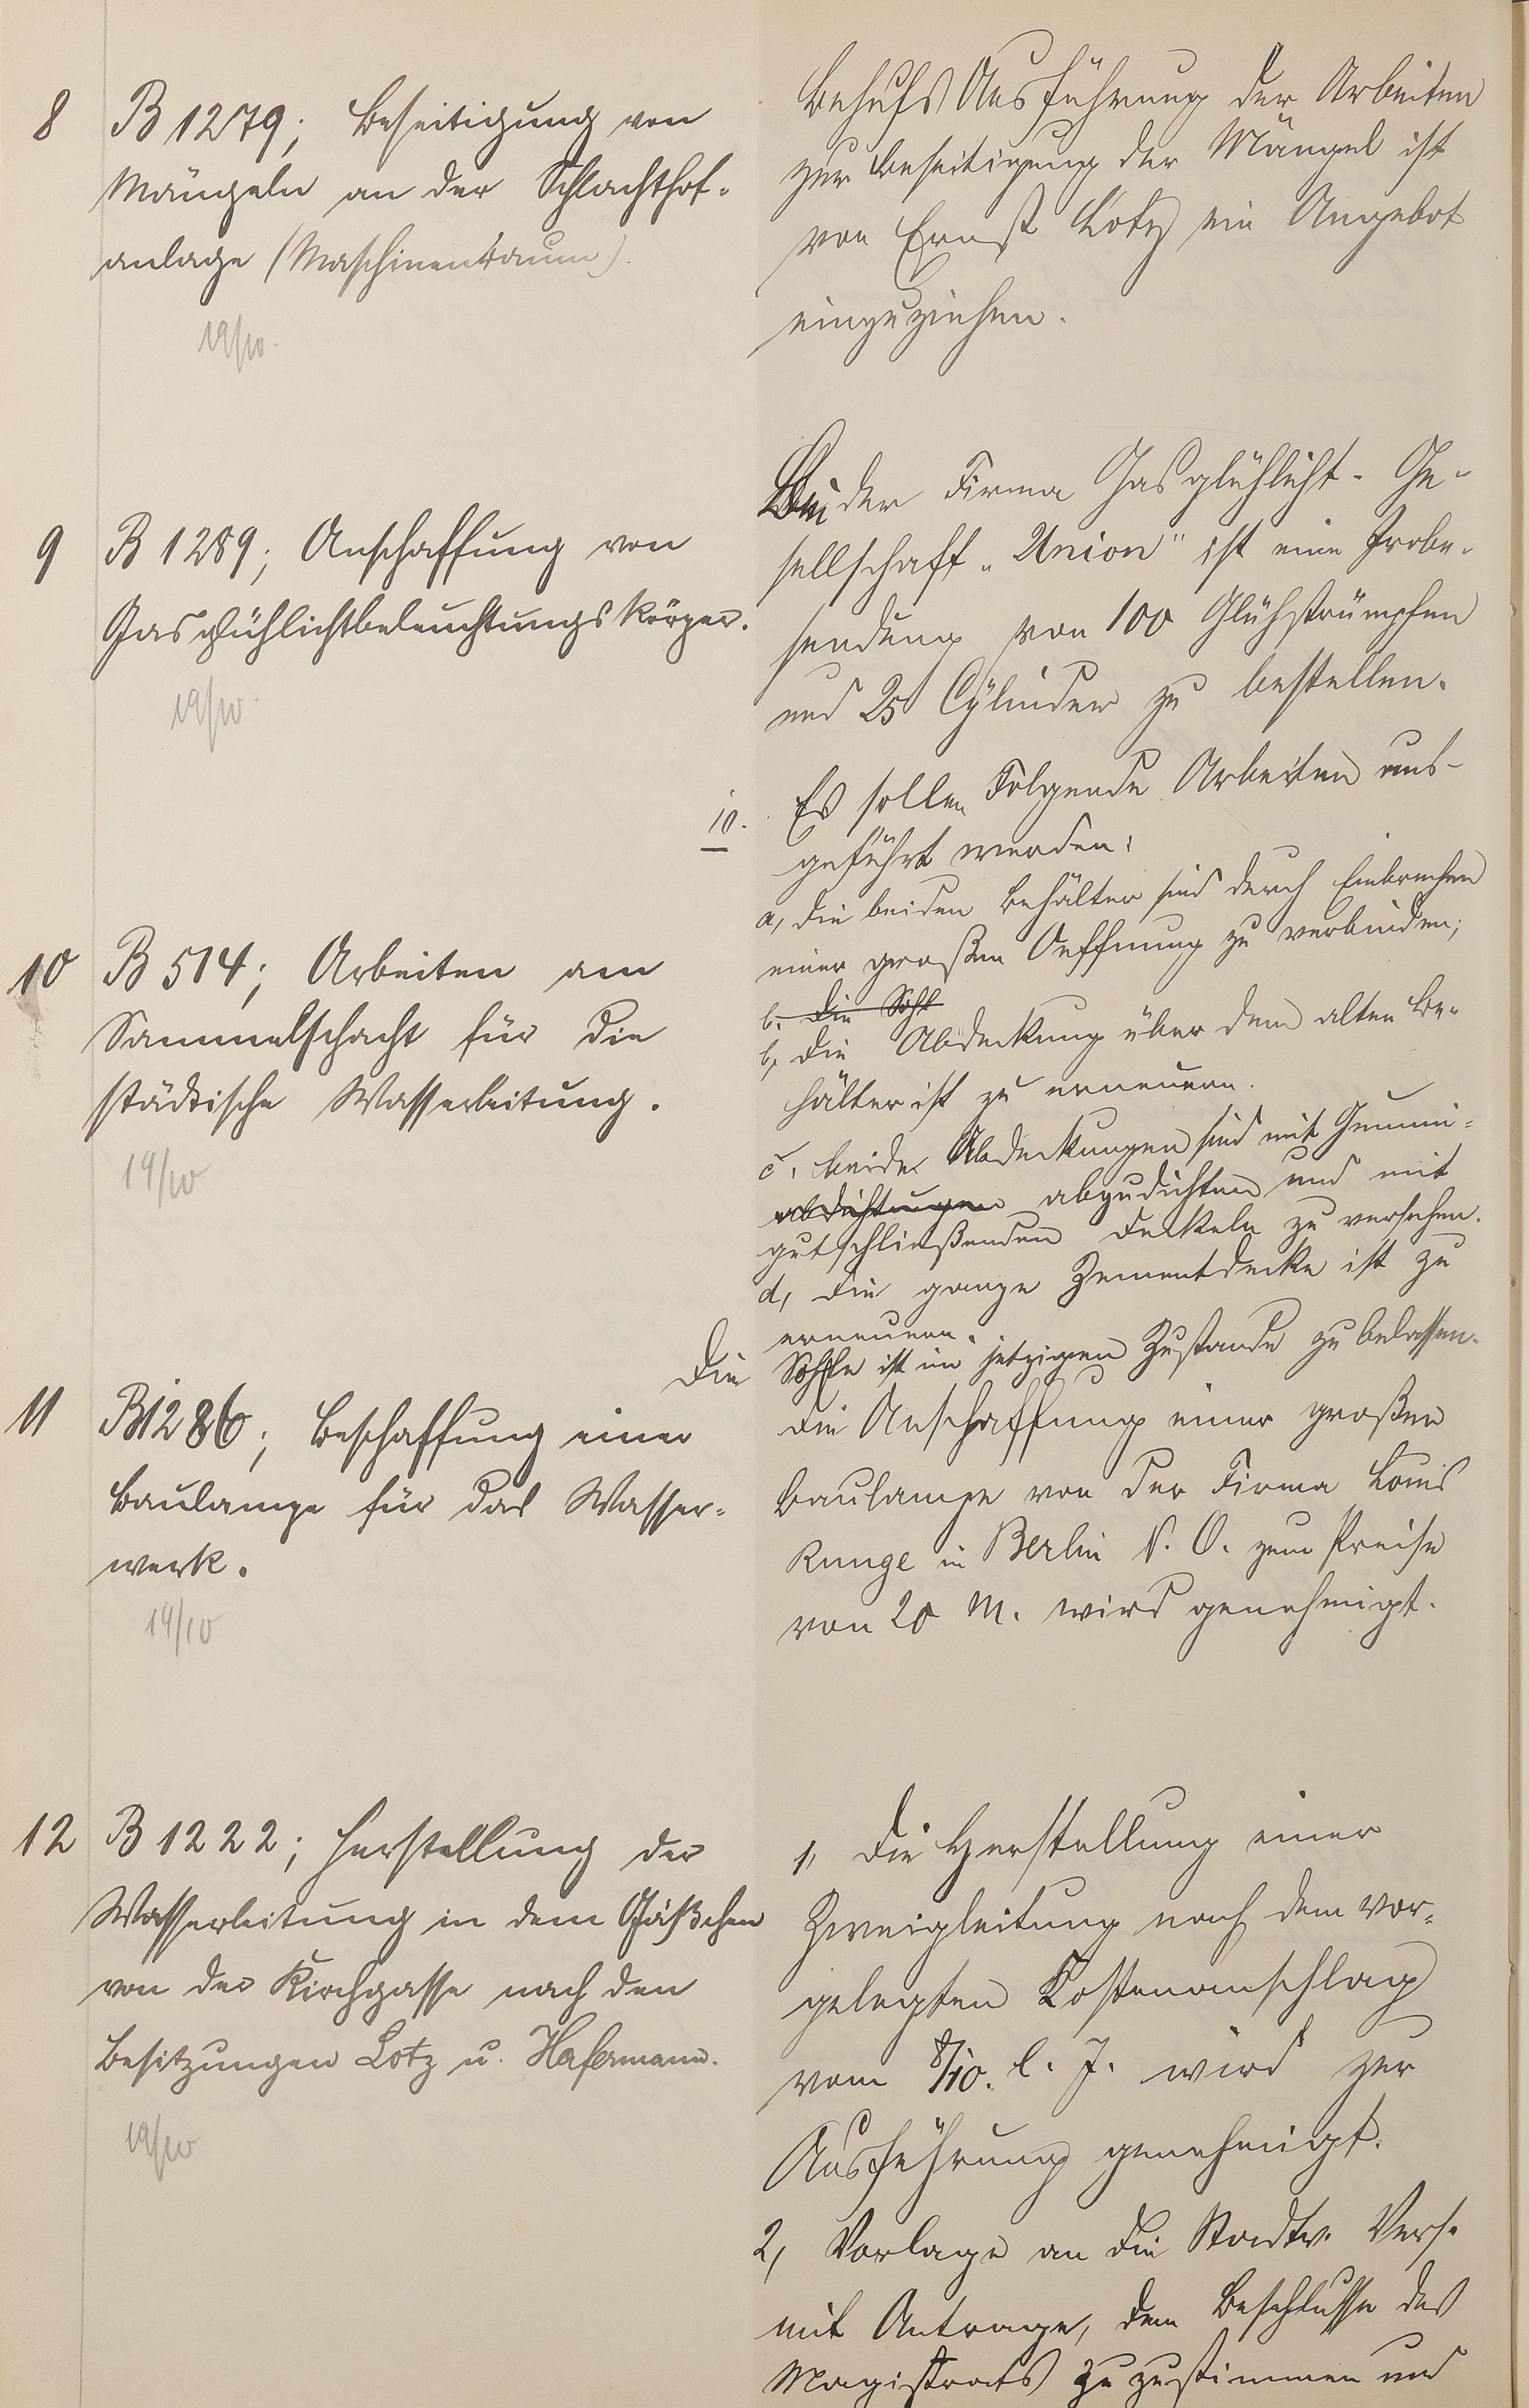 8 B 1279; Beseitigung von
Mängeln an der Schlachthof-
anlage (Maschinenraum).
19/10.
Behufs Ausführung der Arbeiten
zur Beseitigung der Mängel ist
von Ernst Lotz ein Angebot
einzuziehen.
9 B 1289; Anschaffung von
Gasglühlichtbeleuchtungskörper.
19/10.
Bei der Firma Gasglühlicht-Ge-
sellschaft „Union" ist eine Probe-
sendung von 100 Glühstrümpfen
und 25 Cylinder zu bestellen.
10 B 514; Arbeiten am
Sammelschacht für die
städtische Wasserleitung.
19/10
10. Es sollen folgende Arbeiten aus-
geführt werden:
a, die beiden Behälter sind durch Einbrechen
einer großen Oeffnung zu verbinden;
b. Die Sohl
b, die Abdeckung über dem alten Be-
hälter ist zu erneuern.
c, beide Abdeckungen sind mit Gummi-
abdichtungen abzudichten und mit
gutschließenden Deckeln zu versehen.
d, die ganze Zementdecke ist zu
erneuern.
Die Sohle ist im jetzigen Zustande zu belassen.
11 B 1286; Beschaffung einer
Baulampe für das Wasser-
werk.
19/10
Die Anschaffung einer großen
Baulampe von der Firma Louis
Runge in Berlin N. O. zum Preise
von 20 M. wird genehmigt.
12 B 1222; Herstellung der
Wasserleitung in dem Gäßchen
von der Kirchgasse nach den
Besitzungen Lotz u. Hafermann.
19/10
1, Die Herstellung einer
Zweigleitung nach dem vor-
gelegten Kostenanschlag
vom 8/10. l. J. wird zur
Ausführung genehmigt.
2, Vorlage an die Stadtv. Vers.
mit Antrage, dem Beschlusse des
Magistrats zuzustimmen und